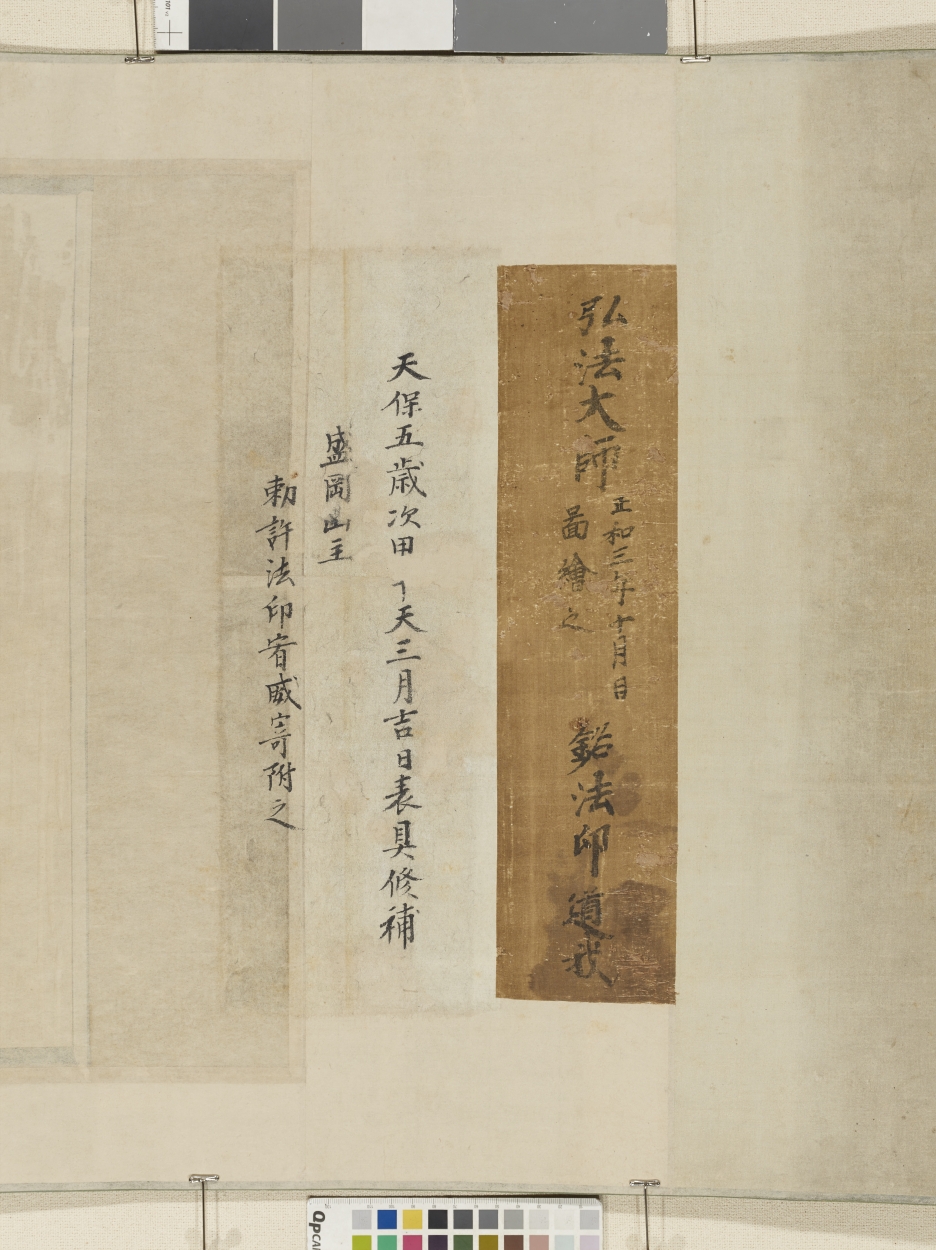 弘法大師
正和三年十月日
圖繪之
法印道我
天保五歳次甲
天三月吉日表具修補
盛岡山主
勅許法印宥威寄附之
QPCA